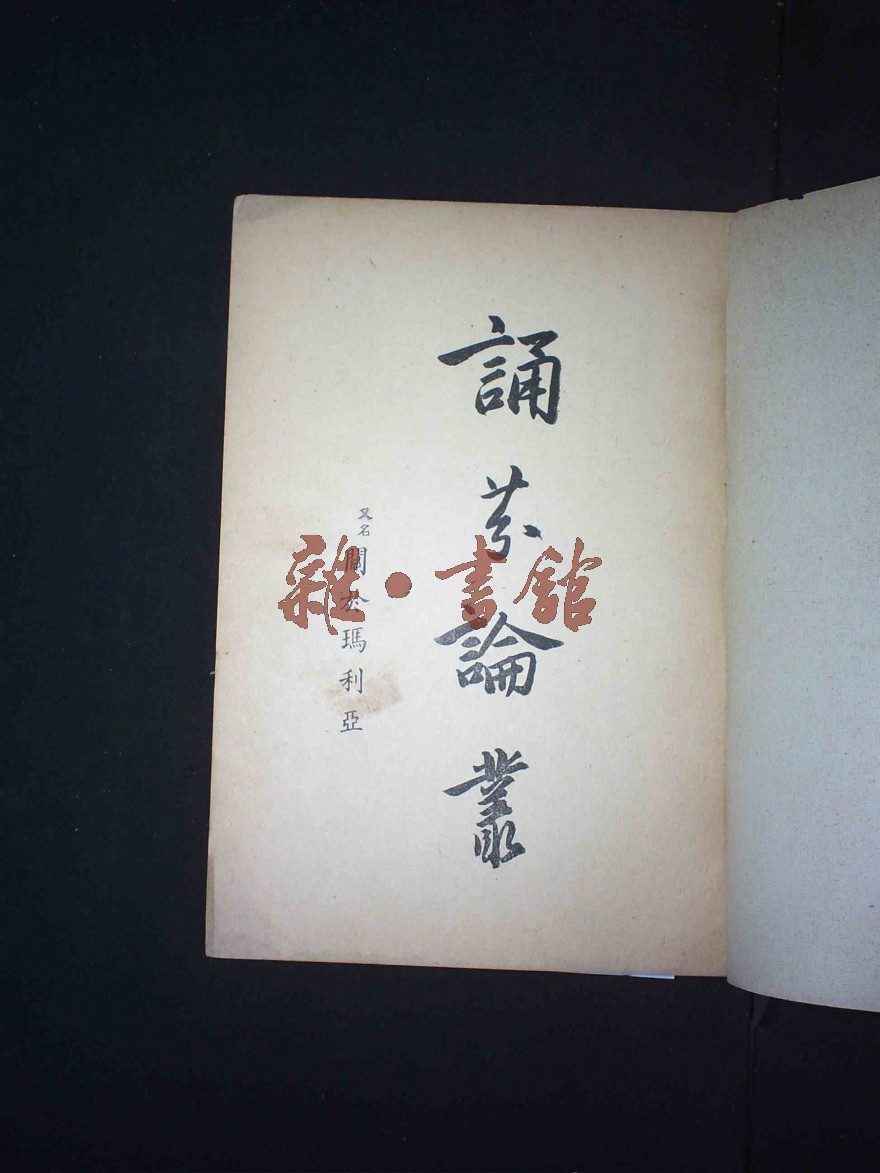 誦芬論叢
又名
關於瑪利亞
雜·書館